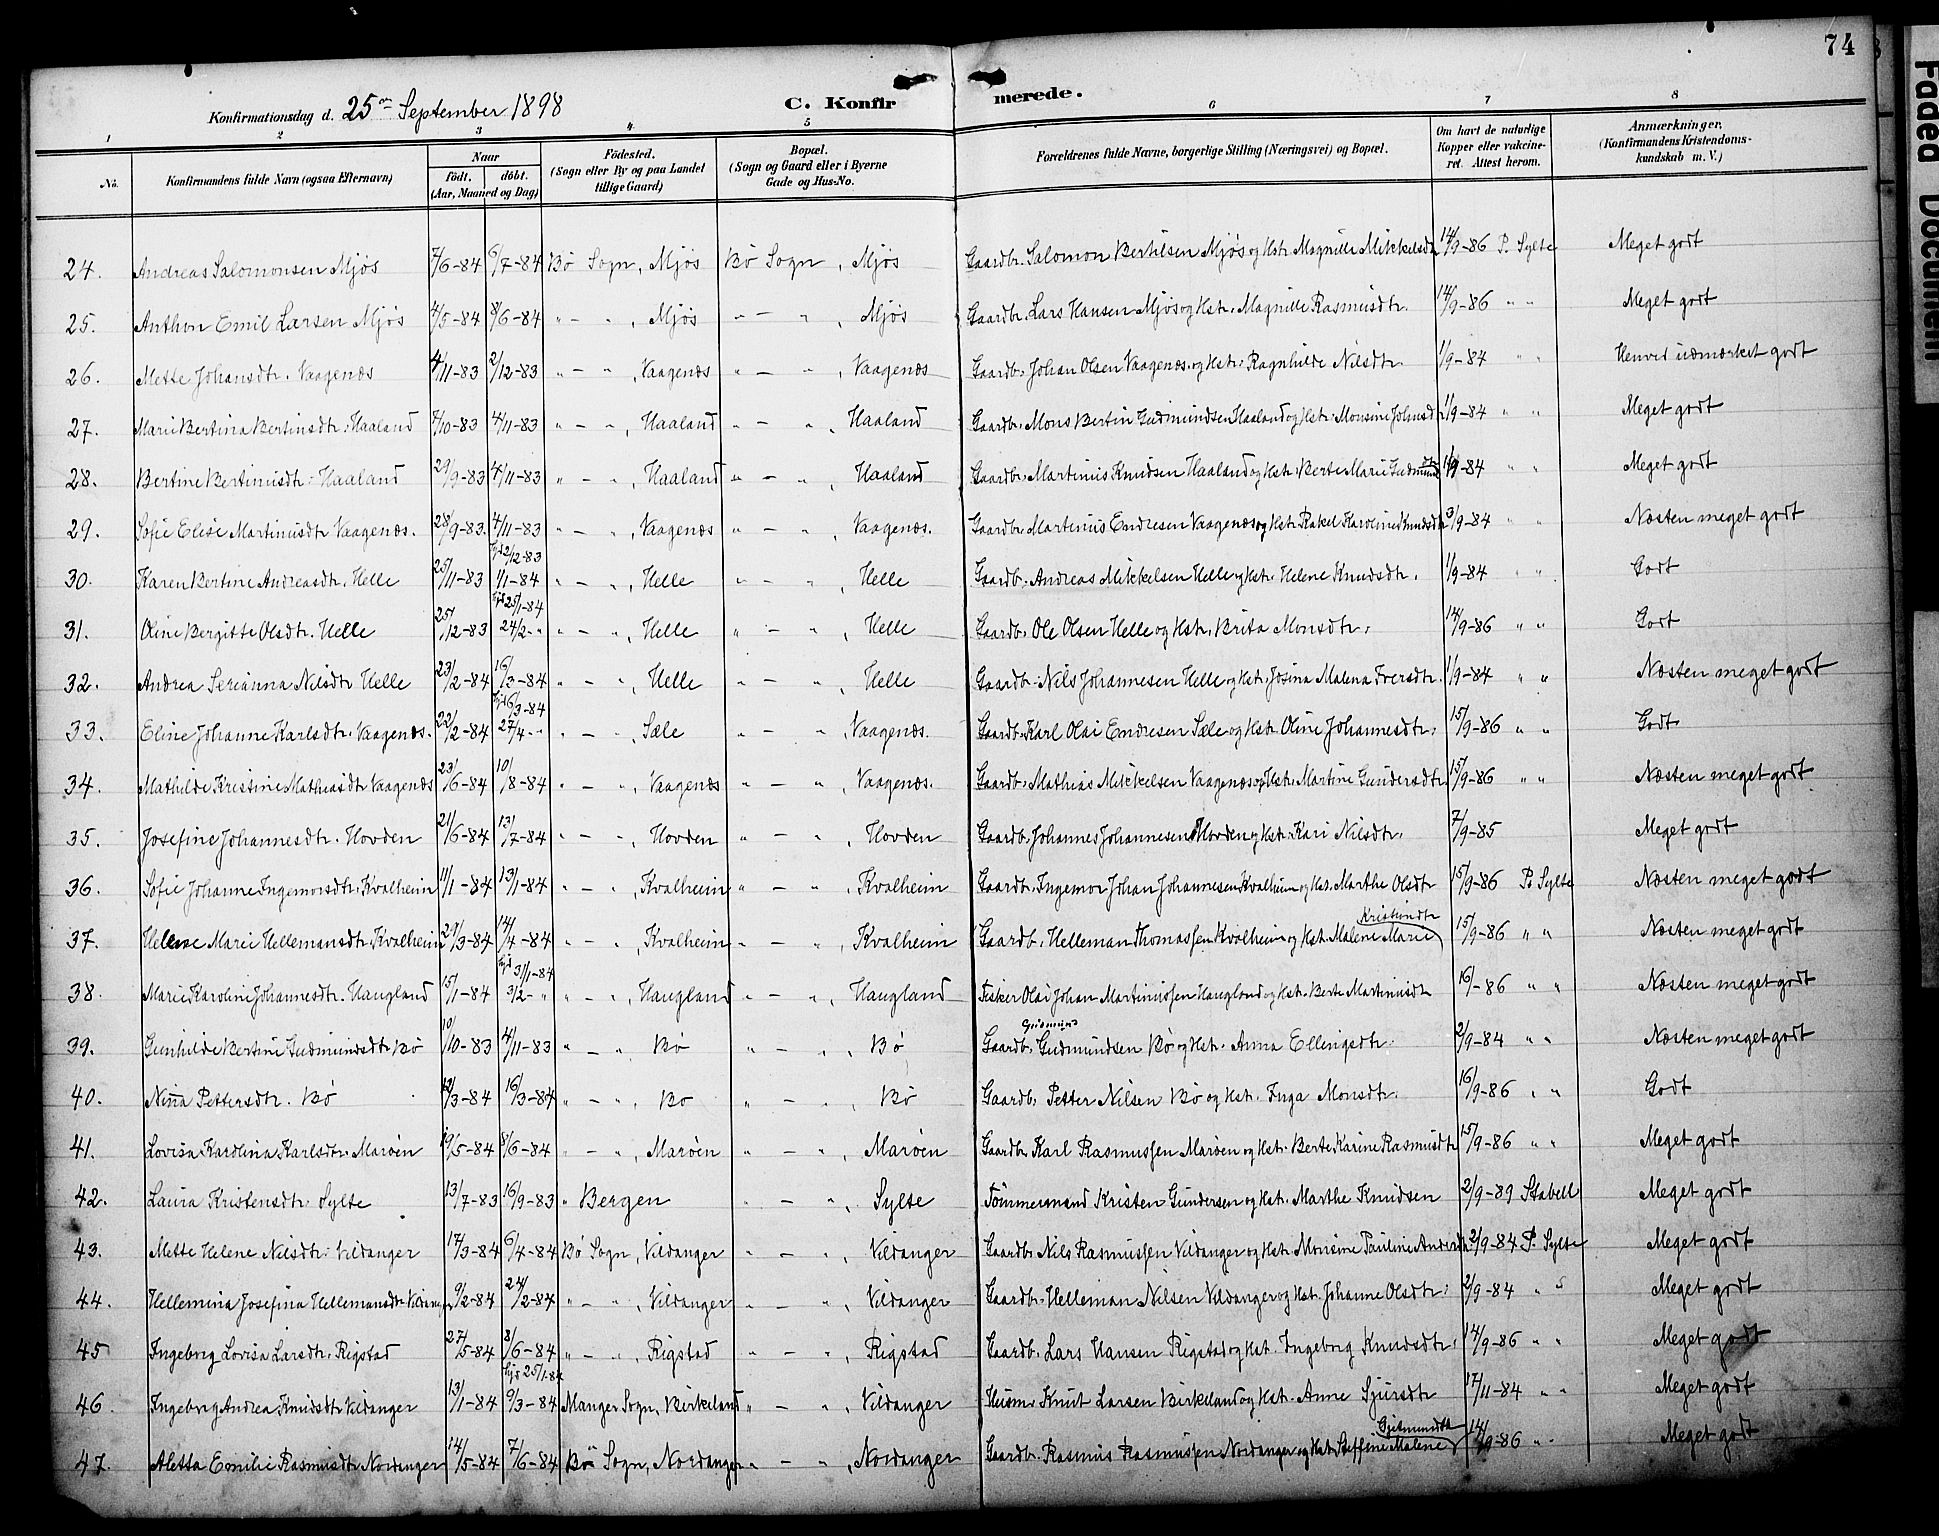 74
Konfirmationsdag d. 25de September 1898 C. Konfirmerede.
1 2 3 4 5 6 7 8
No. Konfirmandens fulde Navn (ogsaa Efternavn) Naar født. døbt. (Aar, Maaned og Dag) Fødested. (Sogn eller By og paa Landet tillige Gaard) Bopæl. (Sogn og Gaard eller i Byerne Gade og Hus-No. Forældrenes fulde Navne, borgerlige Stilling (Næringsvei) og Bopæl. Om havt de naturlige Kopper eller vakcineret. Attest herom. Anmærkninger. (Konfirmandens Kristendomskundskab m. V.)
24. Andreas Salomonsen Mjøs 7/6-84 6/7-84 Bø Sogn, Mjøs Bø Sogn, Mjøs Gaardbr. Salomon Bertilsen Mjøs og Hstr. Magnilla Mikkelsdtr 14/9-86 P. Sylte Meget godt
25. Anthon Emil Larsen Mjøs 4/5-84 8/6-84 " - ", Mjøs " - ", Mjøs Gaardbr. Lars Hansen Mjøs og Hstr. Magnille Rasmusdtr. 14/9-86 " " Meget godt
26. Mette Johansdtr. Vaagenæs 4/11-83 2/12-83 " - ", Vaagenæs " - ", Vaagenæs Gaardb. Johan Olsen Vaagenæs og Hstr. Ragnhilde Nilsdtr. 1/9-84 " " Henved udmærket godt
27. Marie Bertina Bertinsdtr. Haaland 7/10-83 4/11-83 " - ", Haaland " - ", Haaland Gaardbr. Mons Bertin Gudmundsen Haaland og Hstr. Monsine Johnsdtr 1/9-84 " " Meget godt
28. Bertine Bertinusdtr. Haaland 29/9-83 4/11-83 " - ", Haaland " - ", Haaland Gaardbr. Martinus Knudsen Haaland og Hstr. Berte Marie Gudmundsdtr 1/9-84 " " Meget godt
29. Sofie Elise Martinusdtr Vaagenæs. 28/9-83. 4/11-83 " - ", Vaagenæs " - ", Vaagenæs. Gaardbr. Martinus Endresen Vaagenæs og Hstr. Rakel Karoline Knudsdtr 3/9-84 " " Næsten meget godt
30. Karen Bertine Andreasdtr. Helle 25/11-83 hjd 2/12-83 1/1-84 " - ", Helle " - ", Helle Gaardb. Andreas Mikkelsen Helle og Hstr. Helene Knudsdtr. 1/9-84 " " Godt
31. Oline Bergitte Olsdtr. Helle 25/12-83 hjd 25/1-84 24/2-" " - ", Helle " - ", Helle Gaardb. Ole Olsen Helle og Hstr. Brita Monsdtr. 14/9-86 " " Godt
32. Andrea Serianna Nilsdtr Helle 23/2-84 16/3-84 " - ", Helle " - ", Helle Gaardbr. Nils Johannesen Helle og Hstr. Josina Malena Iversdtr. 1/9-84 " " Næsten meget godt
33. Eline Johanne Karlsdtr. Vaagenæs. 22/2-84 hjd 6/3-84 27/4-" " - ", Sæle " - ", Vaagenæs. Gaardb. Karl Olai Endresen Sæle og Hstr. Oline Johannesdtr. 15/9-86 " " Godt
34. Mathilde Kristine Mathiasdtr Vaagenæs 23/6-84 10/8-84 " - ", Vaagenæs " - ", Vaagenæs. Gaardb. Mathias Mikkelsen Vaagenæs og Hstr. Martine Gundersdtr. 15/9-86 " " Næsten meget godt
35. Josefine Johannesdtr. Hovden 21/6-84 13/7-84 " - ", Hovden " - ", Hovden Gaardb. Johannes Johannesen Hovden og Hstr. Kari Nilsdtr. 7/9-85 Meget godt
36. Sofie Johanne Ingemorsdtr. Kvalheim 11/1-84 13/1-84 " - ", Kvalheim " - ", Kvalheim Gaardb. Ingemor Johan Johannesen Kvalheim og Hst. Marthe Olsdtr 15/9-86 P. Sylte Næsten meget godt
37. Helene Marie Hellemansdtr. Kvalheim 27/3-84 14/4-84 " - ", Kvalheim " - ", Kvalheim Gaardb. Helleman Thomassen Kvalheim og Hst. Malene Marie Kristendtr 15/9-86 " " Næsten meget godt
38. Marie Karoline Johannesdtr. Haugland 15/1-84 hjd 31/1-84 3/2-" " - ", Haugland " - ", Haugland Fisker Olai Johan Martinussen Haugland og Hst. Berte Martinusdtr 16/-86 " " Næsten meget godt
39. Gunhilde Bertine Gudmundsdtr Bø 10/10-83 4/11-83 " - " Bø " - ", Bø Gaardb. Gudmund Gudmundsen Bø og Hstr. Anna Ellingsdtr. 2/9-84 " " Næsten meget godt
40. Nina Pettersdtr. Bø 12/3-84 16/3-84 " - ", Bø " - ", Bø Gaardb. Petter Nilsen Bø og Hst. Inga Monsdtr. 16/9-86 " " Godt
41. Lovisa Karolina Karlsdtr. Marøen 19/5-84 8/6-84 " - ", Marøen " - ", Marøen Gaardb. Karl Rasmussen Marøen og Hstr. Berte Karine Rasmusdtr 15/9-86 " " Meget godt
42. Laura Kristensdtr. Sylte 13/7-83 16/9-83 " Bergen " - ", Sylte Tømmermand Kristen Gundersen og Hst. Marthe Knudsen 2/9-89 Stabell Meget godt
43. Mette Helene Nilsdtr. Vildanger 17/3-84 6/4-84 Bø Sogn, Vildanger " - ", Vildanger Gaardb. Nils Rasmussen Vildanger og Hst. Monsine Pauline Andersdtr 2/9-84 P. Sylte Meget godt
44. Hellemina Josefina Hellemansdtr. Vildanger 9/2-84 24/2-84 " - ", Vildanger " - ", Vildanger Gaardb. Helleman Nilsen Vildanger og Hst. Johanne Olsdtr. 2/9-84 " " Meget godt
45 Ingeborg Lovisa Larsdtr. Rigstad 27/5-84 8/6-84 " - ", Rigstad " - ", Rigstad Gaardb. Lars Hansen Rigstad og Hst. Ingeborg Knudsdtr. 14/9-86 " " Meget godt
46. Ingeborg Andrea Knudsdtr. Vildanger 13/1-84 hjd 25/1-84 9/3-84 Manger Sogn, Birkeland " - ", Vildanger Husm. Knut Larsen Birkeland og Hst. Anne Sjursdtr 17/11-84 " " Meget godt
47. Aletta Emilie Rasmusdtr Nordanger 14/5-84 7/6-84 Bø Sogn, Nordanger " - ", Nordanger Gaardb. Rasmus Rasmussen Nordanger og Hst. Steffine Malene Gjetmundsdtr 14/9-86 " " Meget godt
Faded Document